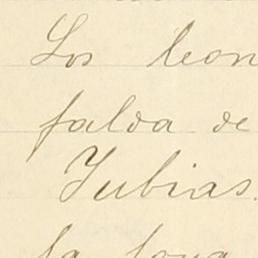 Los leon
falda de
Yubias.
la